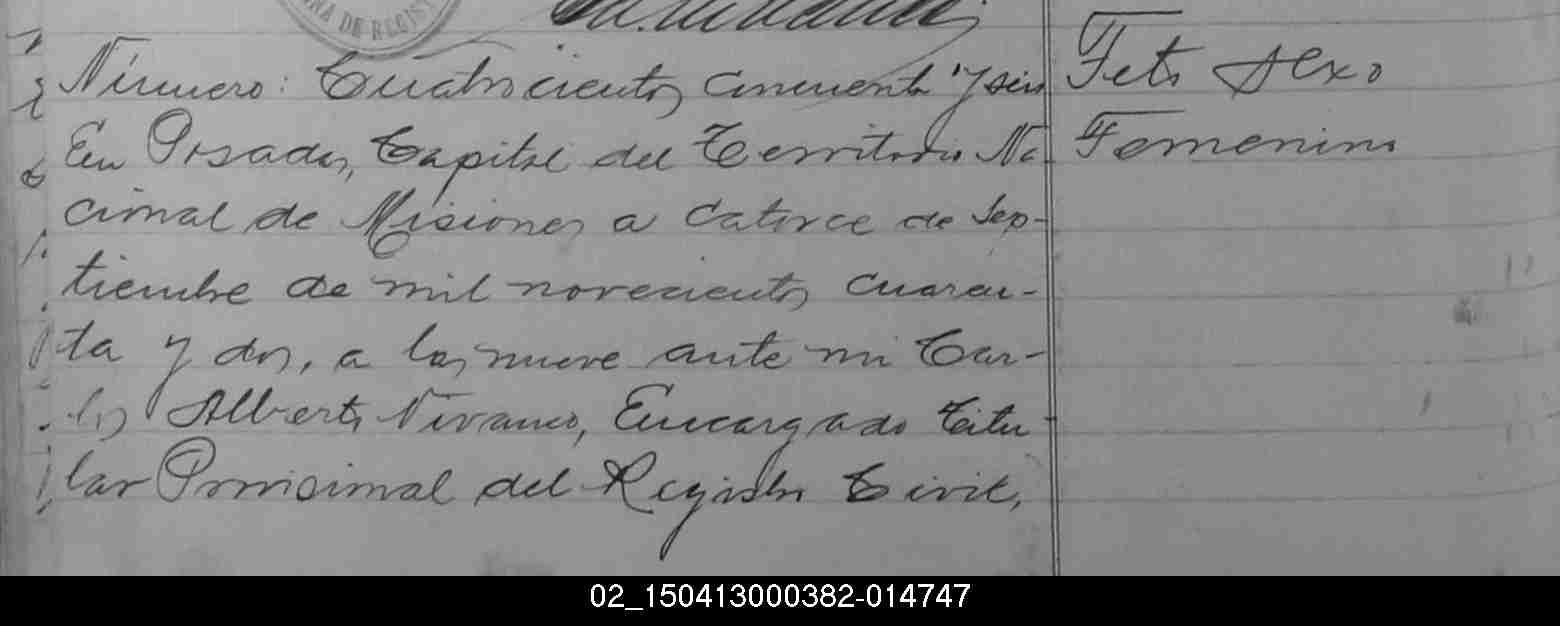 NA DE REGIST
Número: Cuatrocientos cincuenta y seis
En Posadas, Capital del Territorio Na
cional de Misiones a catorce de Sep-
tiembre de mil novecientos cuaren-
ta y dos, a las nueve ante mi Car-
los Alberto Vivanco, Encargado titu-
lar Provisional del Registro Civil,
Feto sexo
Femenino
02_150413000382-014747